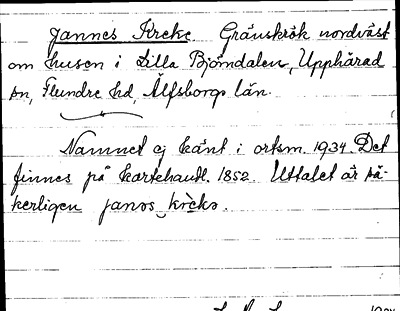 Jannes Kreke Gränskrök nordväst
om husen i Lilla Björndalen, Upphärad
sn, Flundre hd, Älfsborgs län.
Namnet ej känt i ortsm. 1934. Det
finnes på kartehandl. 1852. Uttalet är sä-
kerligen janəs krèkə.